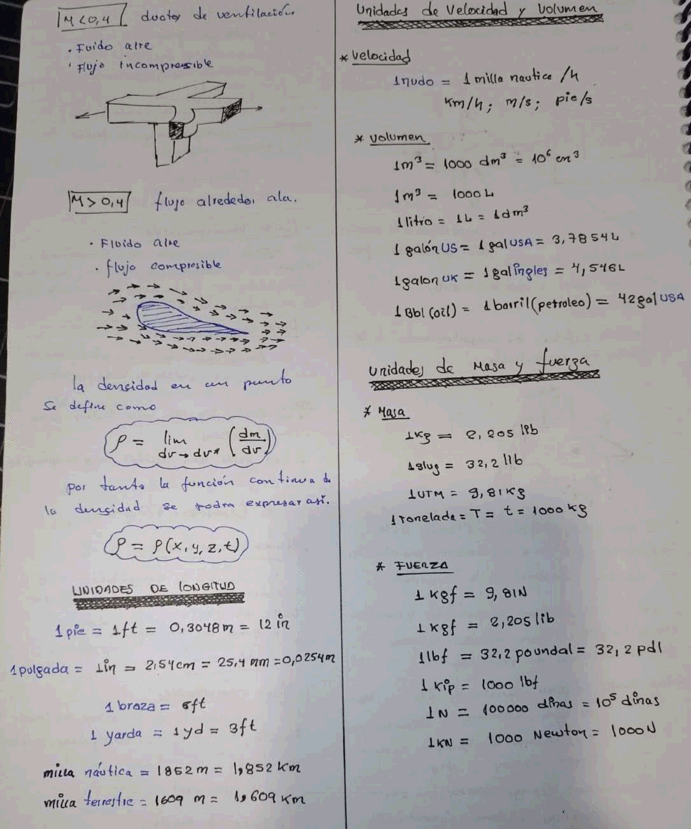 M < 0,4 ductos de ventilación.
· Fuido aire
· Flujo incompresible
M > 0,4 flujo alrededor ala.
· Fluido aire
· flujo compresible
la densidad en un punto
Se define como
ρ = lim dv→dv* (dm/dv)
por tanto la función continua de
la densidad se podra expresar asi.
ρ = ρ(x, y, z, t)
UNIDADES DE LONGITUD
1 pie = 1 ft = 0,3048 m = 12 in
1 pulgada = 1in = 2,54 cm = 25,4 mm = 0,0254 m
1 braza = 6ft
1 yarda = 1 yd = 3ft
milla náutica = 1852 m = 1,852 km
milla terrestre = 1609 m = 1,609 km
Unidades de Velocidad y Volumen
* Velocidad
1 nudo = 1 milla nautica /h
km/h ; m/s ; pie/s
* Volumen
1m³ = 1000 dm³ = 10⁶ cm³
1m³ = 1000 L
1 litro = 1L = 1dm³
1 galón US = 1 gal USA = 3,7854L
1 galon UK = 1 gal ingles = 4,546L
1 Bbl (oil) = 1 barril (petroleo) = 42 gal USA
Unidades de Masa y fuerza
* Masa
1kg = 2,205 lib
1slug = 32,2 lib
1UTM = 9,81kg
1 tonelada = T = t = 1000 kg
* FUERZA
1 kgf = 9,81N
1 kgf = 2,205 lib
1lbf = 32,2 poundal = 32,2 pdl
1 kip = 1000 lbf
1N = 100000 dinas = 10⁵ dinas
1KN = 1000 Newton = 1000N